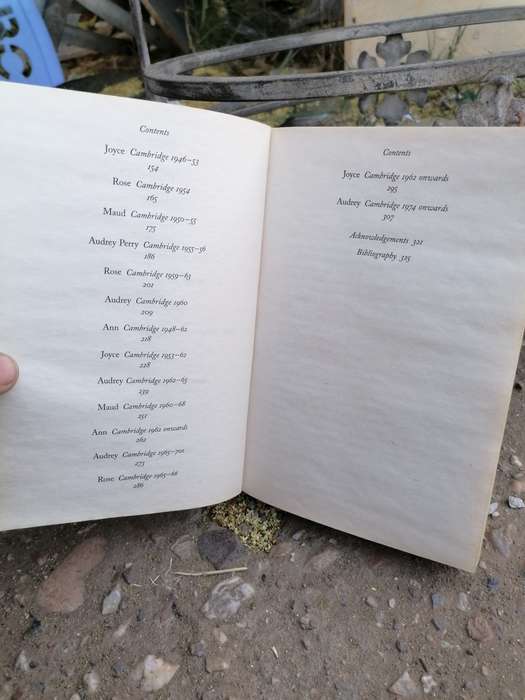 Contents
Joyce Cambridge 1946–53
154
Rose Cambridge 1954
165
Maud Cambridge 1950–55
175
Audrey Perry Cambridge 1955–56
186
Rose Cambridge 1959–63
201
Audrey Cambridge 1960
209
Ann Cambridge 1948–62
218
Joyce Cambridge 1953–62
228
Audrey Cambridge 1962–65
239
Maud Cambridge 1960–68
251
Ann Cambridge 1962 onwards
262
Audrey Cambridge 1965–70s
273
Rose Cambridge 1965–66
286
Contents
Joyce Cambridge 1962 onwards
295
Audrey Cambridge 1974 onwards
307
Acknowledgements 321
Bibliography 325